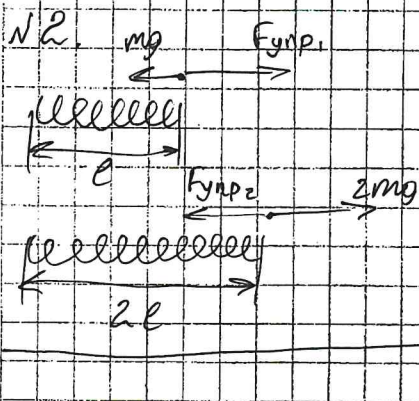 N2.
mg Fупр₁
l
Fупр₂ 2mg
2l